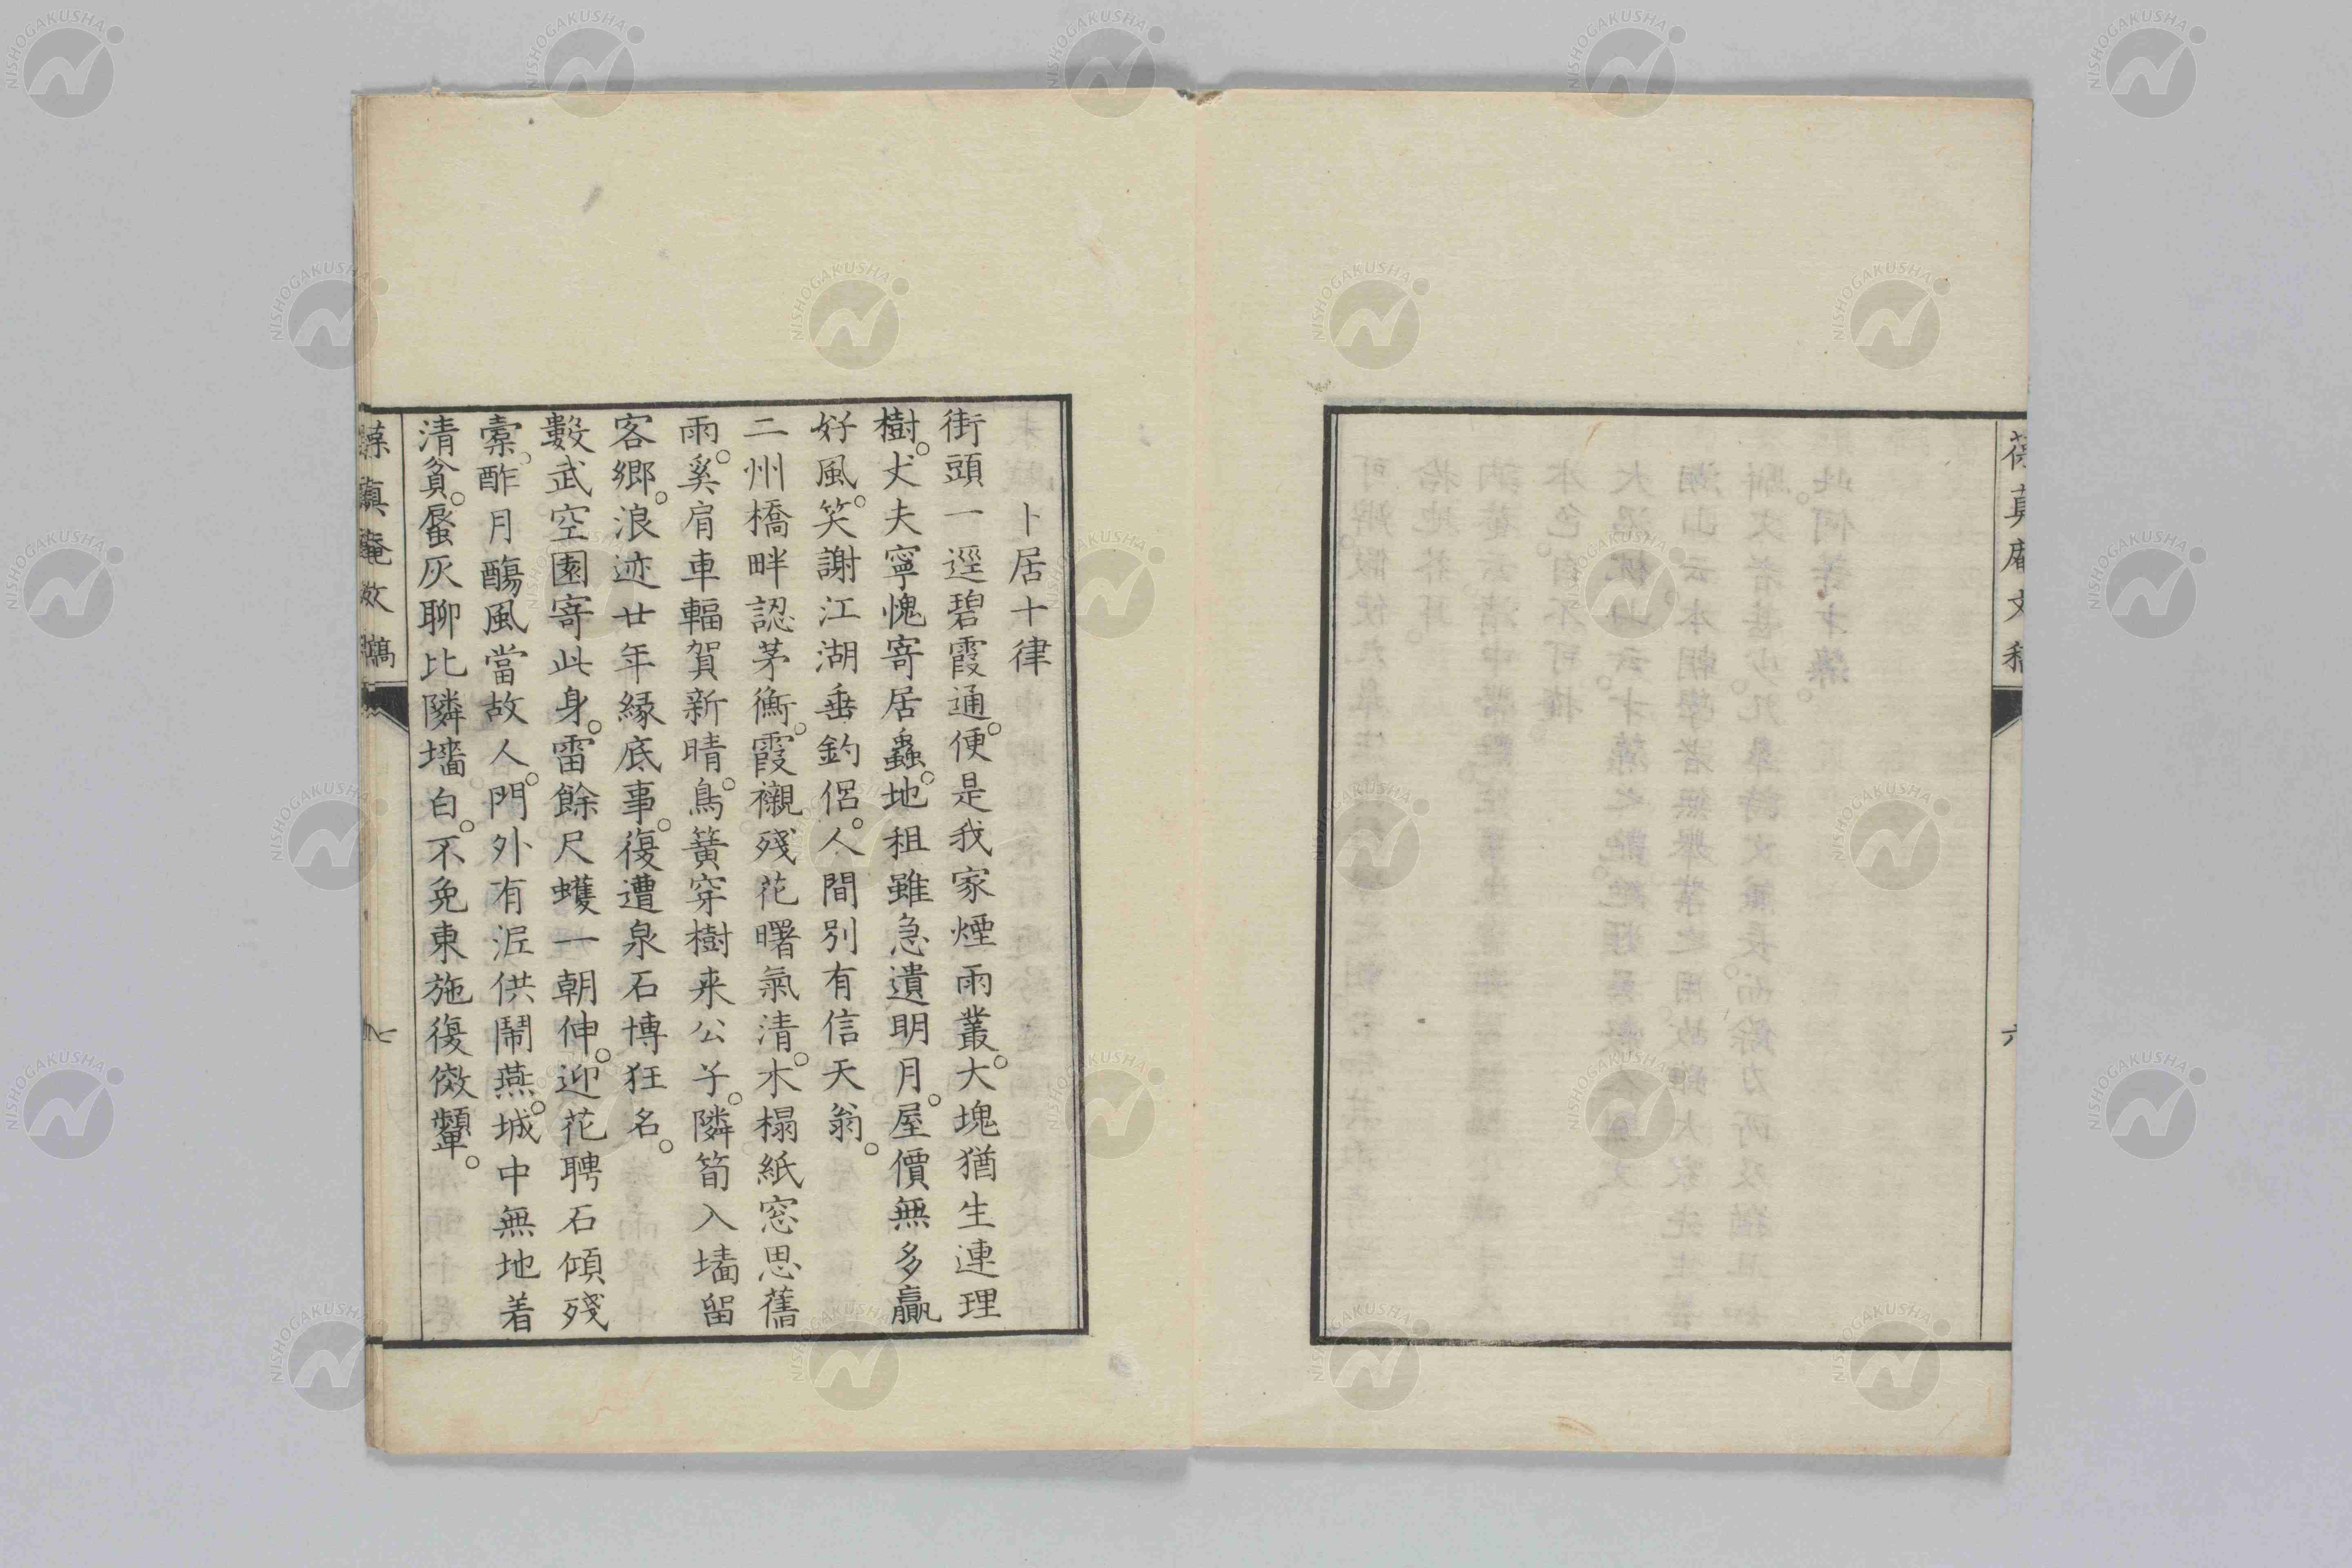 卜居十律
街頭一逕碧霞通。便是我家煙雨叢。大塊猶生連理
樹。丈夫寧愧寄居蟲。地租雖急遺明月。屋價無多贏
好風。笑謝江湖垂釣侶。人間別有信天翁。
二州橋畔認茅衡。霞襯殘花曙氣清。木榻紙窓思舊
雨。奚肩車輻賀新晴。鳥簧穿樹来公子。隣筍入墻留
客鄉。浪迹廿年緣底事。復遭泉石博狂名。
數武空園寄此身。雷餘尺蠖一朝伸。迎花聘石傾殘
橐。酢月酶風當故人。門外有泥供鬧燕。城中無地着
清貧。蜃灰聊比隣墻白。不免東施復傚顰。